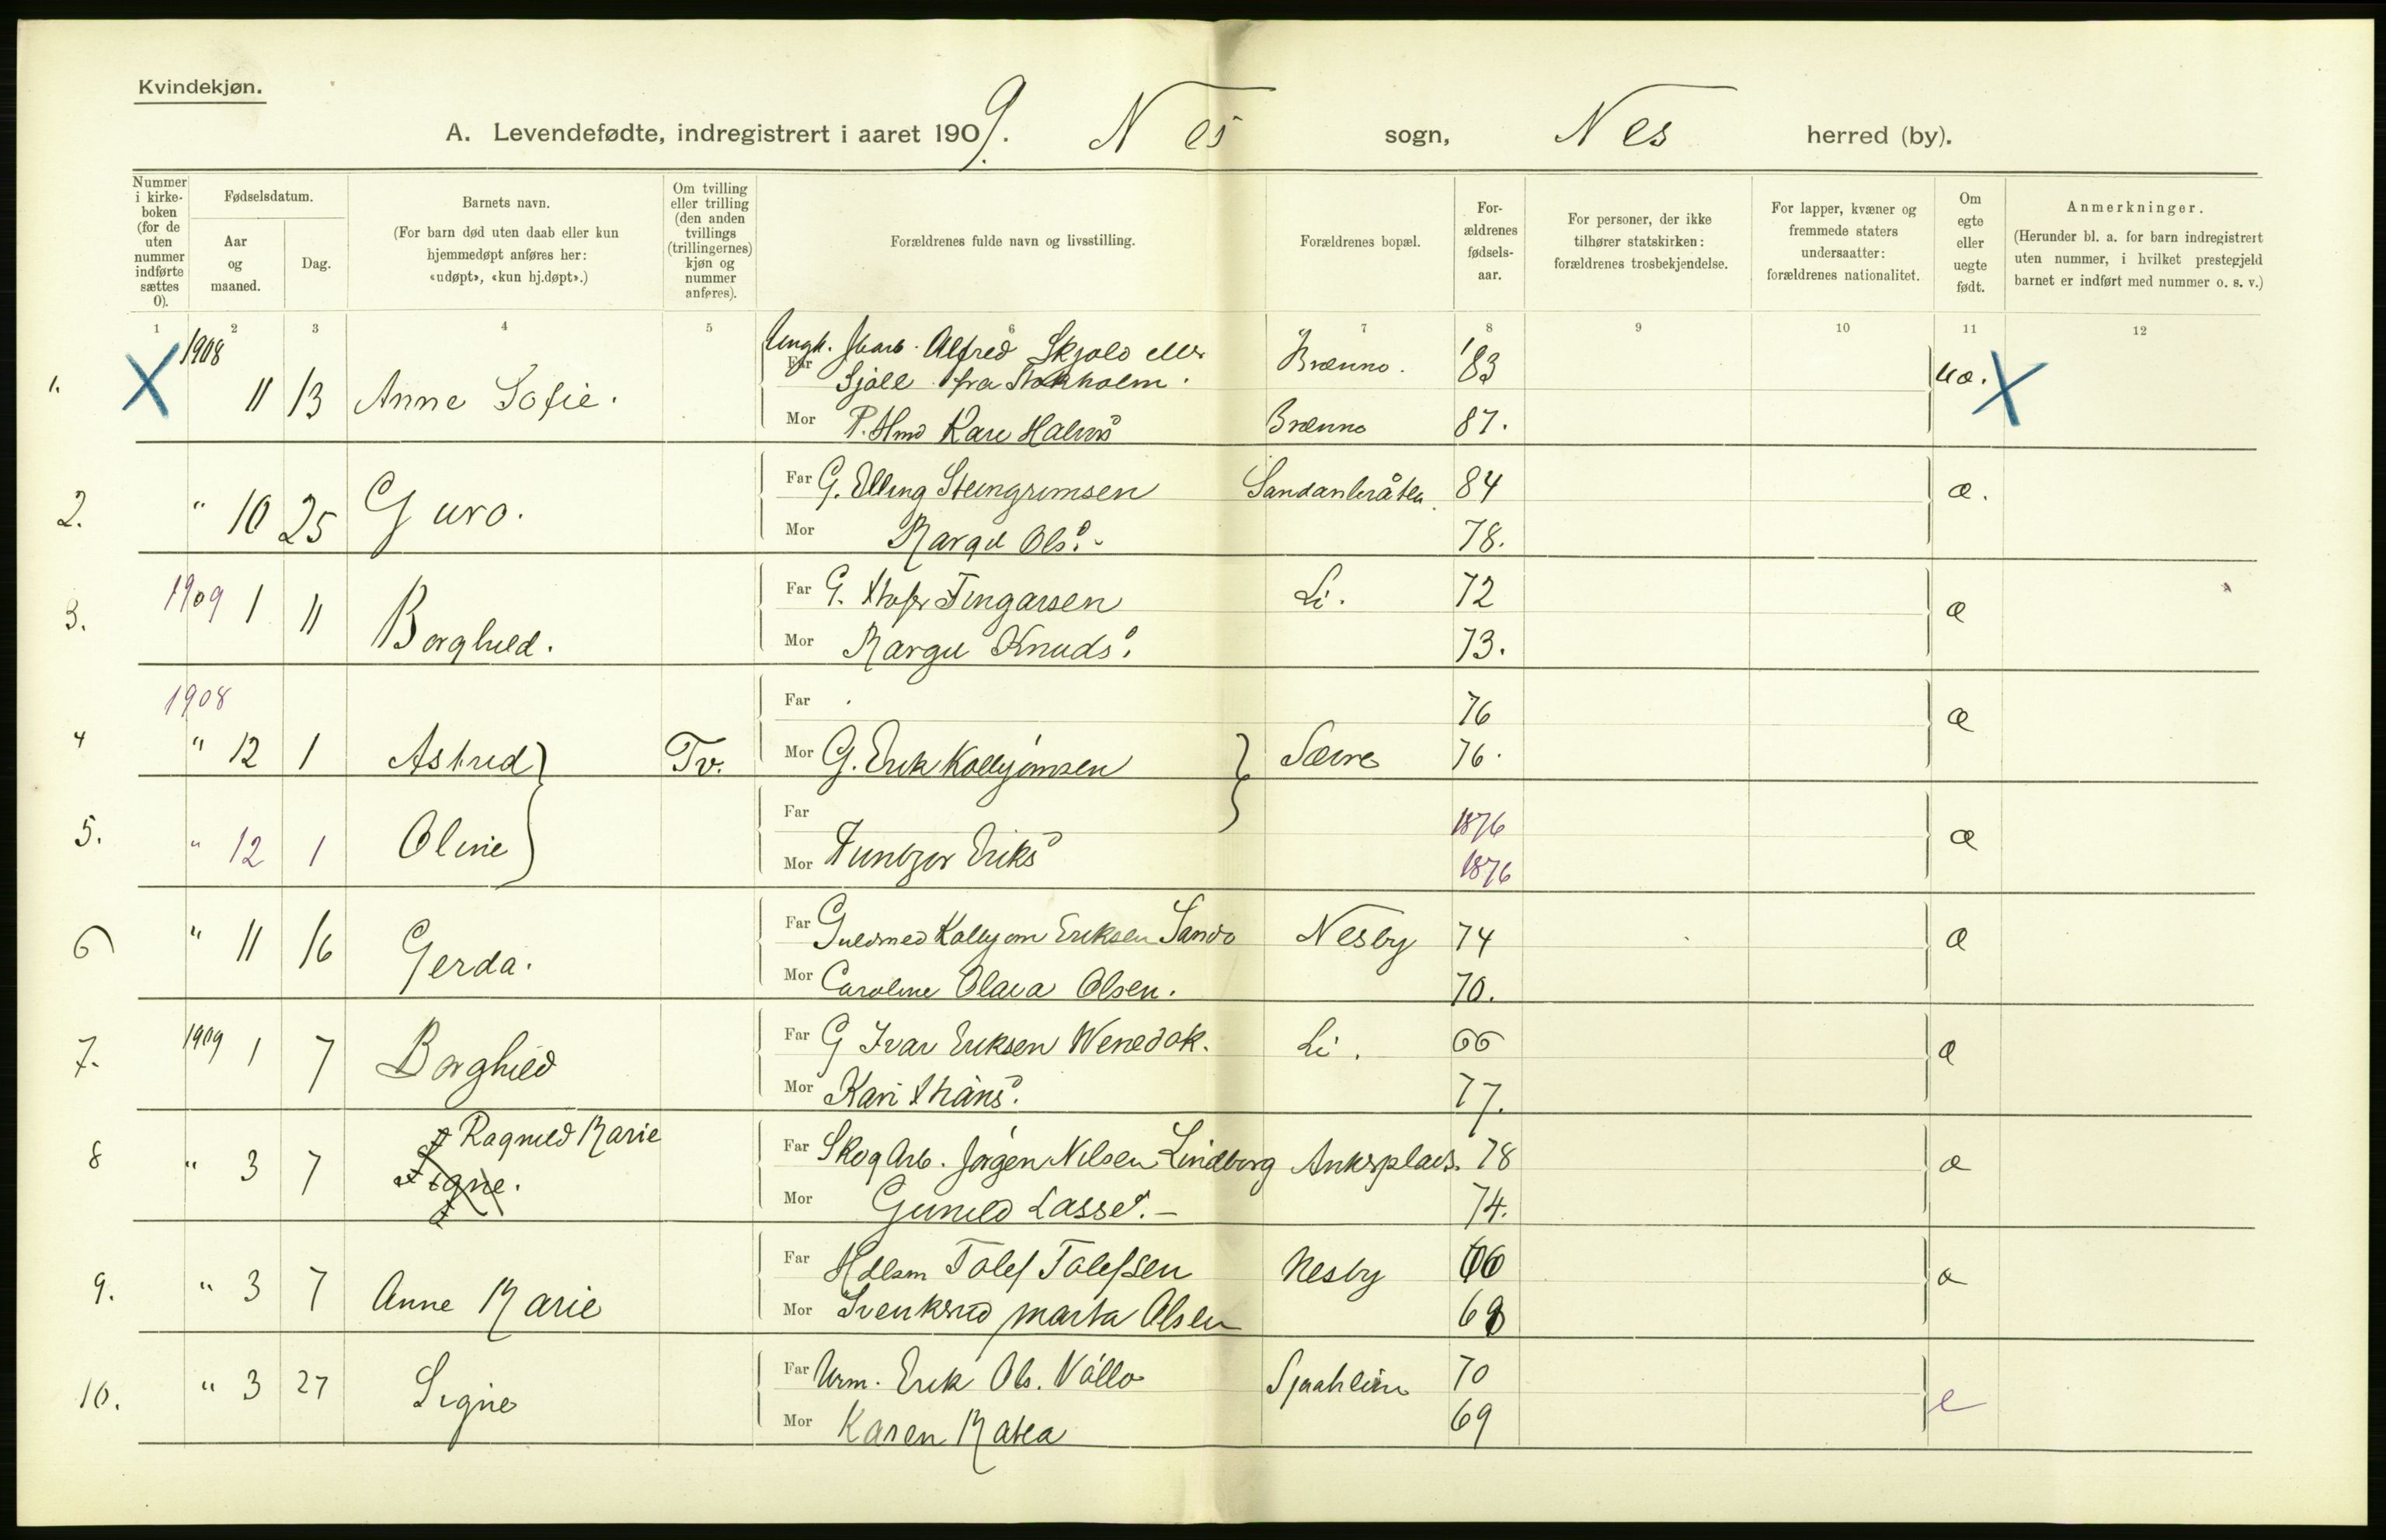 Kvindekjøn.
A. Levendefødte, indregistrert i aaret 1909. Nes sogn, Nes herred (by).
Nummer i kirkeboken (for de uten nummer indførte sættes 0).
Fødselsdatum.
Aar og maaned.
Dag.
Barnets navn.
(For barn død uten daab eller kun hjemmedøpt anføres her: «udøpt», «kun hj.døpt».)
Om tvilling eller trilling (den anden tvillings (trillingernes) kjøn og nummer anføres).
Forældrenes fulde navn og livsstilling.
Forældrenes bopæl.
Forældrenes fødselsaar.
For personer, der ikke tilhører statskirken: forældrenes trosbekjendelse.
For lapper, kvæner og fremmede staters undersaatter: forældrenes nationalitet.
Om egte eller uegte født.
Anmerkninger.
(Herunder bl. a. for barn indregistrert uten nummer, i hvilket prestegjeld barnet er indført med nummer o. s. v.)
1 2 3 4 5 6 7 8 9 10 11 12
1. X 1908 11 13 Anne Sofie. Far Ungk. Alfred Skjold eller Bremno. '83 uæ. X
fra Stokholm.
Mor P. Kari Halvs Bremno 87.
2. " 10 25 Guro. Far G. Elling Steingrimsen 84 æ.
Mor Margit Ols. 78.
3. 1909 1 11 Borghild. Far G. Fingarsen Li. 72 æ
Mor Margit Knuds. 73.
1908
4 " 12 1 Astrid } Tv. Far 76 æ
Mor G. Erik } 76.
5. " 12 1 Oline Far 1876 æ
Mor Eriks 1876
6 " 11 16 Gerda. Far Guldsmed Eriksen Sando Nesby 74 æ
Mor Caroline Olava Olsen. 70.
7. 1909 1 7 Borghild Far G Ivar Eriksen Li. 66 æ
Mor Kari 77.
8 " 3 7 Ragnild Marie Far Skogarb. Jørgen Nilsen Lindberg Ankerplads. 78 æ
Signe. Mor Gunild Lasse. – 74.
9. " 3 7 Anne Marie Far Tolef Tolefsen Nesby 66 æ
Mor Svenkerud Marta Olsen
10. " 3 27 Signe Far Urm. Erik Ols. 70 e
Mor Karen Matea 69